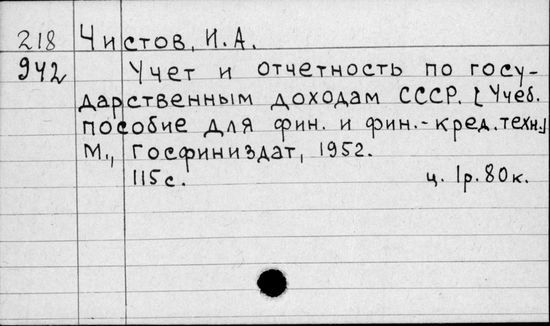 218 Чистов, И.А.
942 Учет и отчетность по госу-
дарственным доходам СССР. [Учеб.
пособие для фин. и фин.-кред. техн.]
М., Госфиниздат, 1952.
115 с. ц. 1р. 80к.